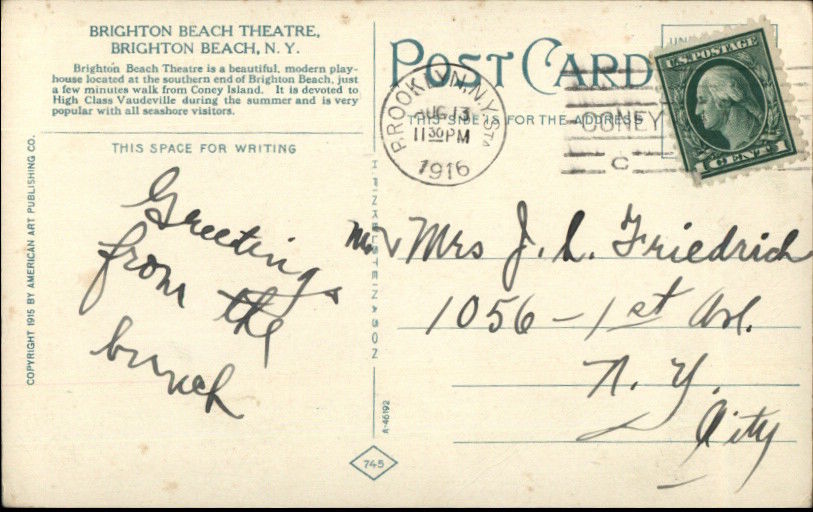 BRIGHTON BEACH THEATRE,
BRIGHTON BEACH, N. Y.
Brighton Beach Theatre is a beautiful, modern play-
house located at the southern end of Brighton Beach, just
a few minutes walk from Coney Island. It is devoted to
High Class Vaudeville during the summer and is very
popular with all seashore visitors.
THIS SPACE FOR WRITING
Greetings
from the
bunch
COPYRIGHT 1915 BY AMERICAN ART PUBLISHING CO.
H. FINKELSTEIN & SON
A-46192
745
POST CARD
THIS SIDE IS FOR THE ADDRESS
BROOKLYN, N.Y. STA
AUG 13
11 30 PM
1916
CONEY
C
U.S. POSTAGE
1 CENT 1
Mr & Mrs J. L. Friedrich
1056 - 1st Ave.
N. Y.
City